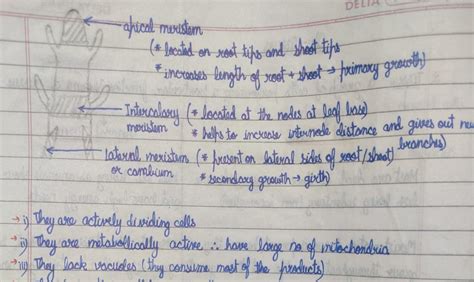 DELTA
apical meristem
(* located on root tips and shoot tips
* increases length of root + shoot → primary growth)
Intercalary (* located at the nodes at leaf base)
meristem * helps to increase internode distance and gives out new
branches)
lateral meristem (* present on lateral sides of root/shoot)
or cambium * secondary growth → girth)
→ i) They are actively dividing cells
→ ii) They are metabollically active ∴ have large no of mitochondria
→ iii) They lack vacuoles (thy consume most of the products)